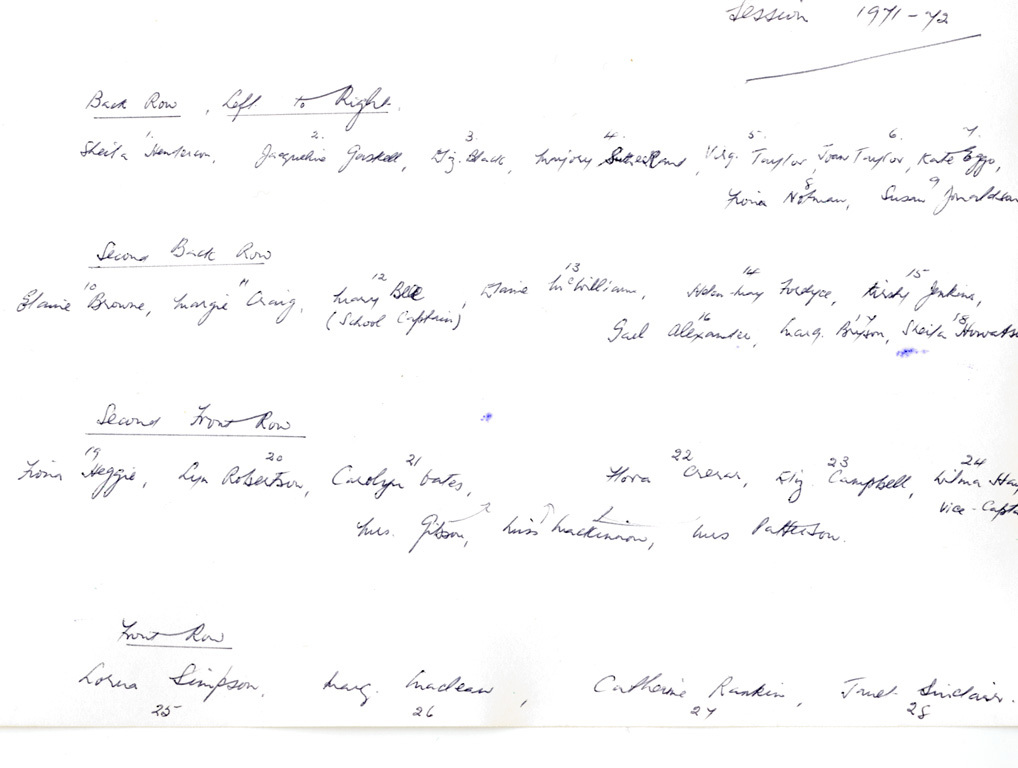 Session 1971-72
Back Row, Left to Right.
1 2. 3. 4. 5. 6. 7.
Sheila Henderson, Jacqueline Gaskell, Eliz. Black, Marjory Sutherland, Virg. Taylor, Joan Taylor, Kate Eggo,
8 9
Fiona Notman, Susan Donaldson
Second Back Row
10 11 12 13 14 15
Elaine Browne, Margie Craig, Mary Bell, Elaine McWilliam, Helen-May Fordyce, Kirsty Jenkins,
(School Captain)
16 17 18
Gael Alexander, Marg. Bryson, Sheila
Second Front Row
19 20 21 22 23 24
Fiona Heggie, Lyn Robertson, Carolyn Oates, Flora Crerar, Eliz. Campbell, Wilma
Vice-Capta
Mrs. Gibson, Miss Mackinnon, Mrs Patterson.
Front Row
Lorna Simpson, Marg. Maclean, Catherine Rankin, Janet Sinclair.
25 26 27 28